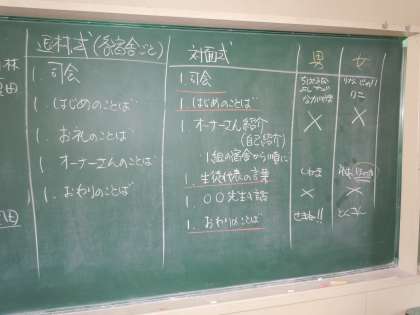 退村式(各宿舎ごと)
1. 司会
1. はじめのことば
1. お礼のことば
1. オーナーさんのことば
1. おわりのことば
対面式
1. 司会
1. はじめのことば
1. オーナーさん紹介
(自己紹介)
1組の宿舎から順に
1. 生徒代表の言葉
1. 〇〇先生の話
1. おわりのことば
男
×
×
女
×
×
林
田